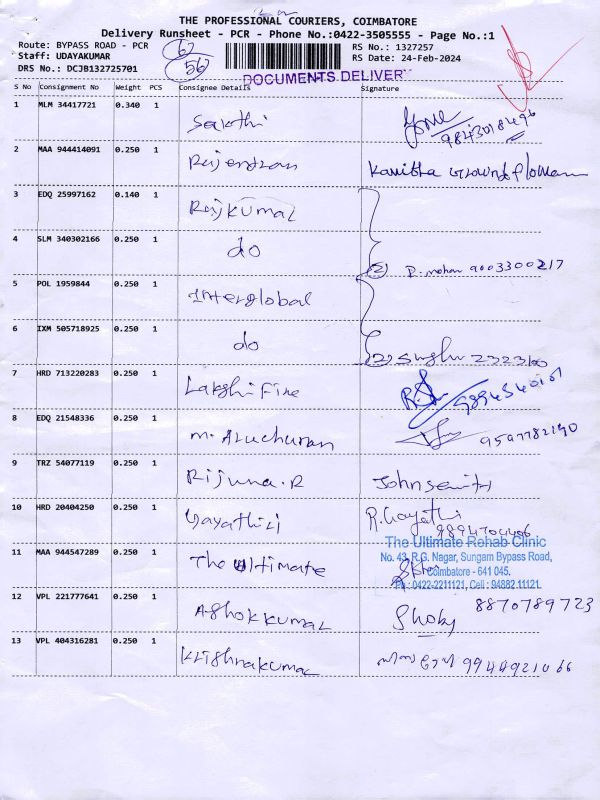 THE PROFESSIONAL COURIERS, COIMBATORE
Delivery Runsheet - PCR - Phone No.:0422-3505555 - Page No.:1
Route: BYPASS ROAD - PCR 62 RS No.: 1327257
Staff: UDAYAKUMAR RS Date: 24-Feb-2024
DRS No.: DCJB132725701 56 DOCUMENTS DELIVERY
S No Consignment No Weight PCS Consignee Details Signature
1 MLM 34417721 0.340 1 Sakthi 9843018496
2 MAA 944414091 0.250 1 Rajendran Kavitha
3 EDQ 25997162 0.140 1 Rajkumar
4 SLM 340302166 0.250 1 do (2) R. mohan 9003300217
5 POL 1959844 0.250 1 Interglobal
6 IXM 505718925 0.250 1 do (2)
7 HRD 713220283 0.250 1 Lakshi Fine
8 EDQ 21548336 0.250 1 M. Aruchunan 9597782190
9 TRZ 54077119 0.250 1 Rijuna.R Johnsmith
10 HRD 20404250 0.250 1 Gayathiri R. Gayathi
The Ultimate Rehab Clinic
No. 43, R.G. Nagar, Sungam Bypass Road,
11 MAA 944547289 0.250 1 The Ultimate Coimbatore - 641 045.
Ph : 0422-2211121, Cell : 94882 11121.
12 VPL 221777641 0.250 1 Ashokkumar 8870789723
13 VPL 404316281 0.250 1 Krishnakumar